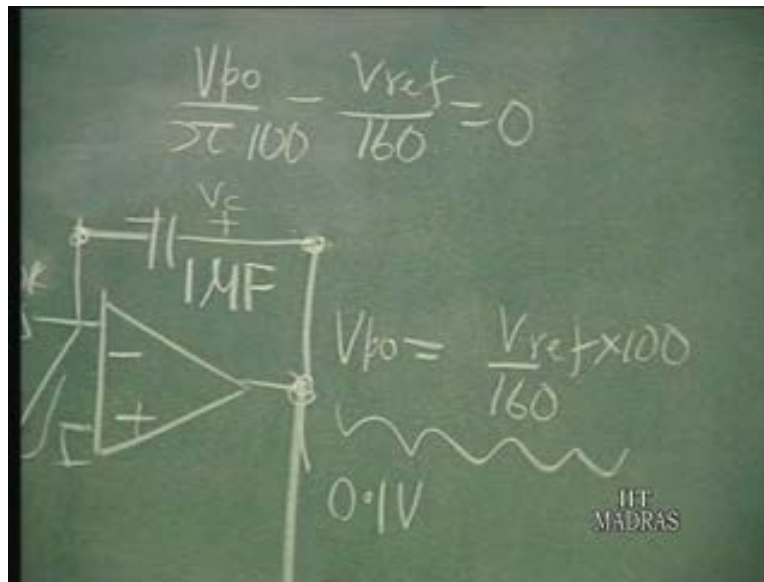 Vpo/π100 - Vref/160 = 0
Vc
- +
1MF
-
+
Vpo = Vref/160 ×100
0.1V
IIT
MADRAS